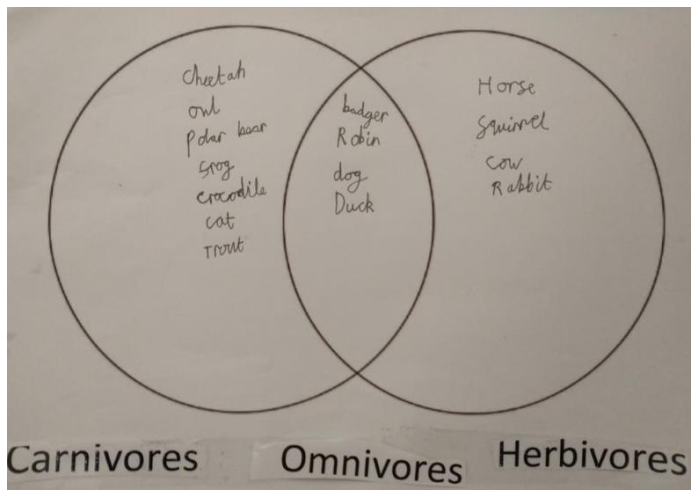 Cheetah
owl
Polar bear
frog
crocodile
cat
Trout
badger
Robin
dog
Duck
Horse
Squirrel
cow
Rabbit
Carnivores
Omnivores
Herbivores